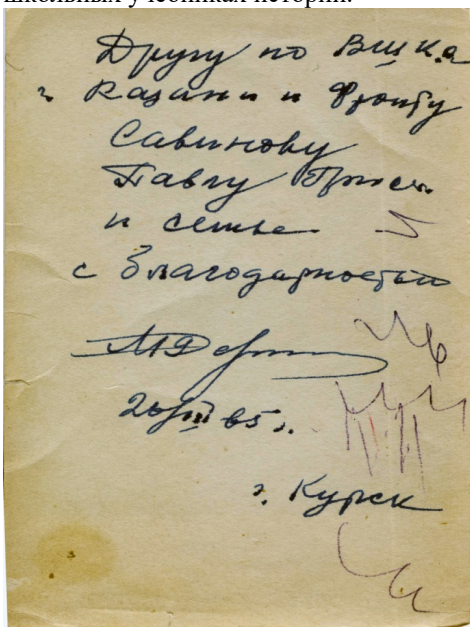 школьных учебниках истории.
Другу по ВШК в
г. Казани и Фронту
Савинову
Павлу
и семье
с благодарностью
65 г.
г. Курск